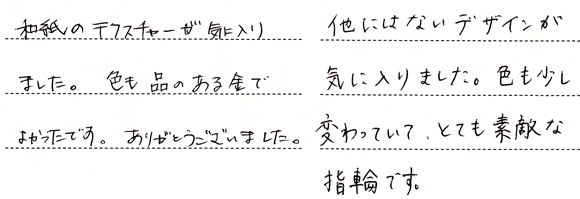 和紙のテクスチャーが気に入り
ました。色も品のある金で
よかったです。ありがとうございました。
他にはないデザインが
気に入りました。色も少し
変わっていて、とても素敵な
指輪です。